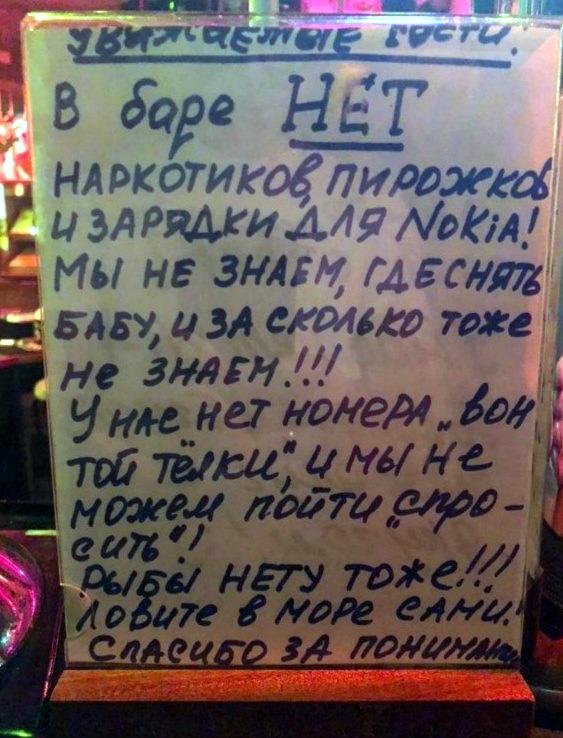 Уважаемые гости!
В баре НЕТ
НАРКОТИКОВ, ПИРОЖКОВ
И ЗАРЯДКИ ДЛЯ NOKIA!
МЫ НЕ ЗНАЕМ, ГДЕ СНЯТЬ
БАБУ, И ЗА СКОЛЬКО ТОЖЕ
НЕ ЗНАЕМ!!!
У НАС НЕТ НОМЕРА „ВОН
ТОЙ ТЁЛКИ“, И МЫ НЕ
МОЖЕМ ПОЙТИ „СПРО-
СИТЬ“!
РЫБЫ НЕТУ ТОЖЕ!!!
ЛОВИТЕ В МОРЕ САМИ!
СПАСИБО ЗА ПОНИМАНИЕ